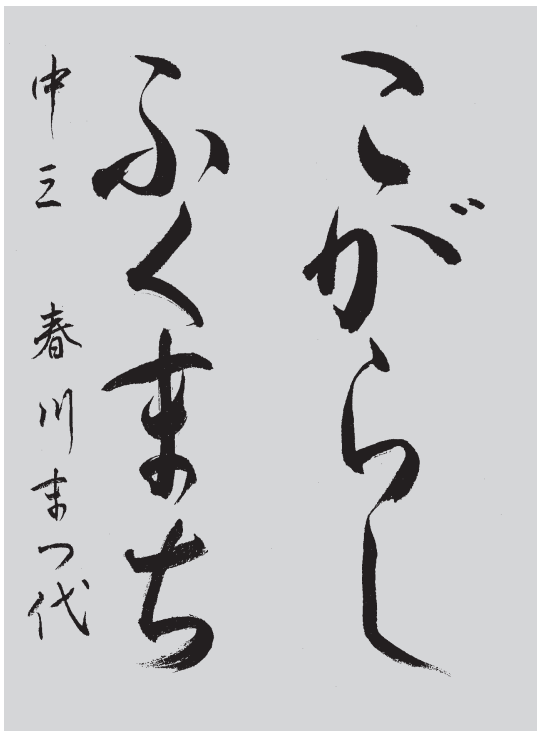 こがらし
ふくまち
中三 春川まつ代